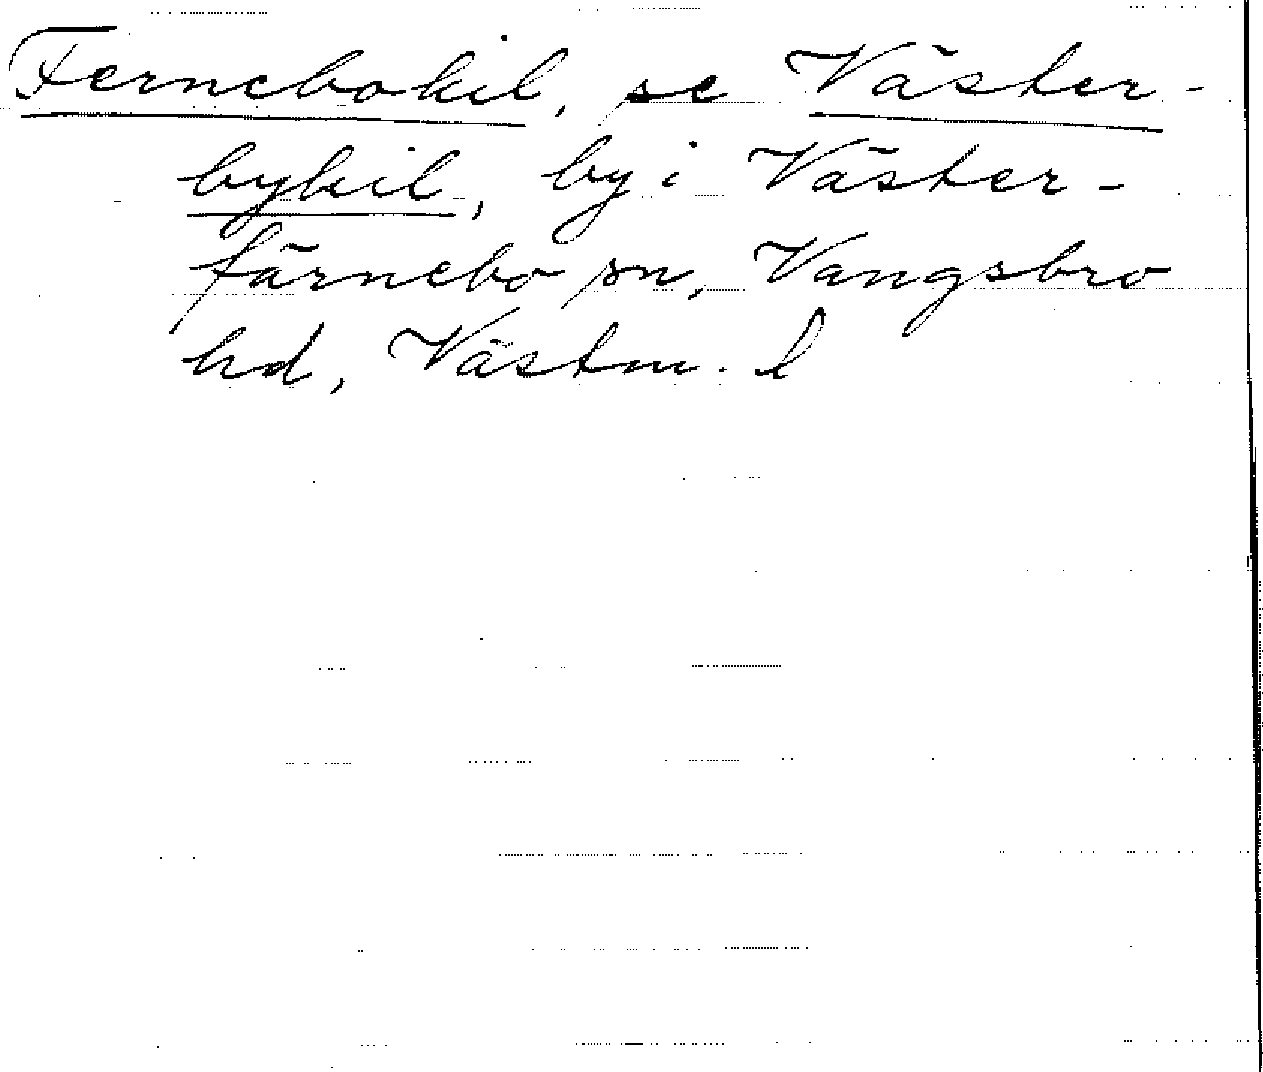 Fernebokil, se Väster-
bykil, by i Väster-
färnebo sn, Vangsbro
hd, Västm. l